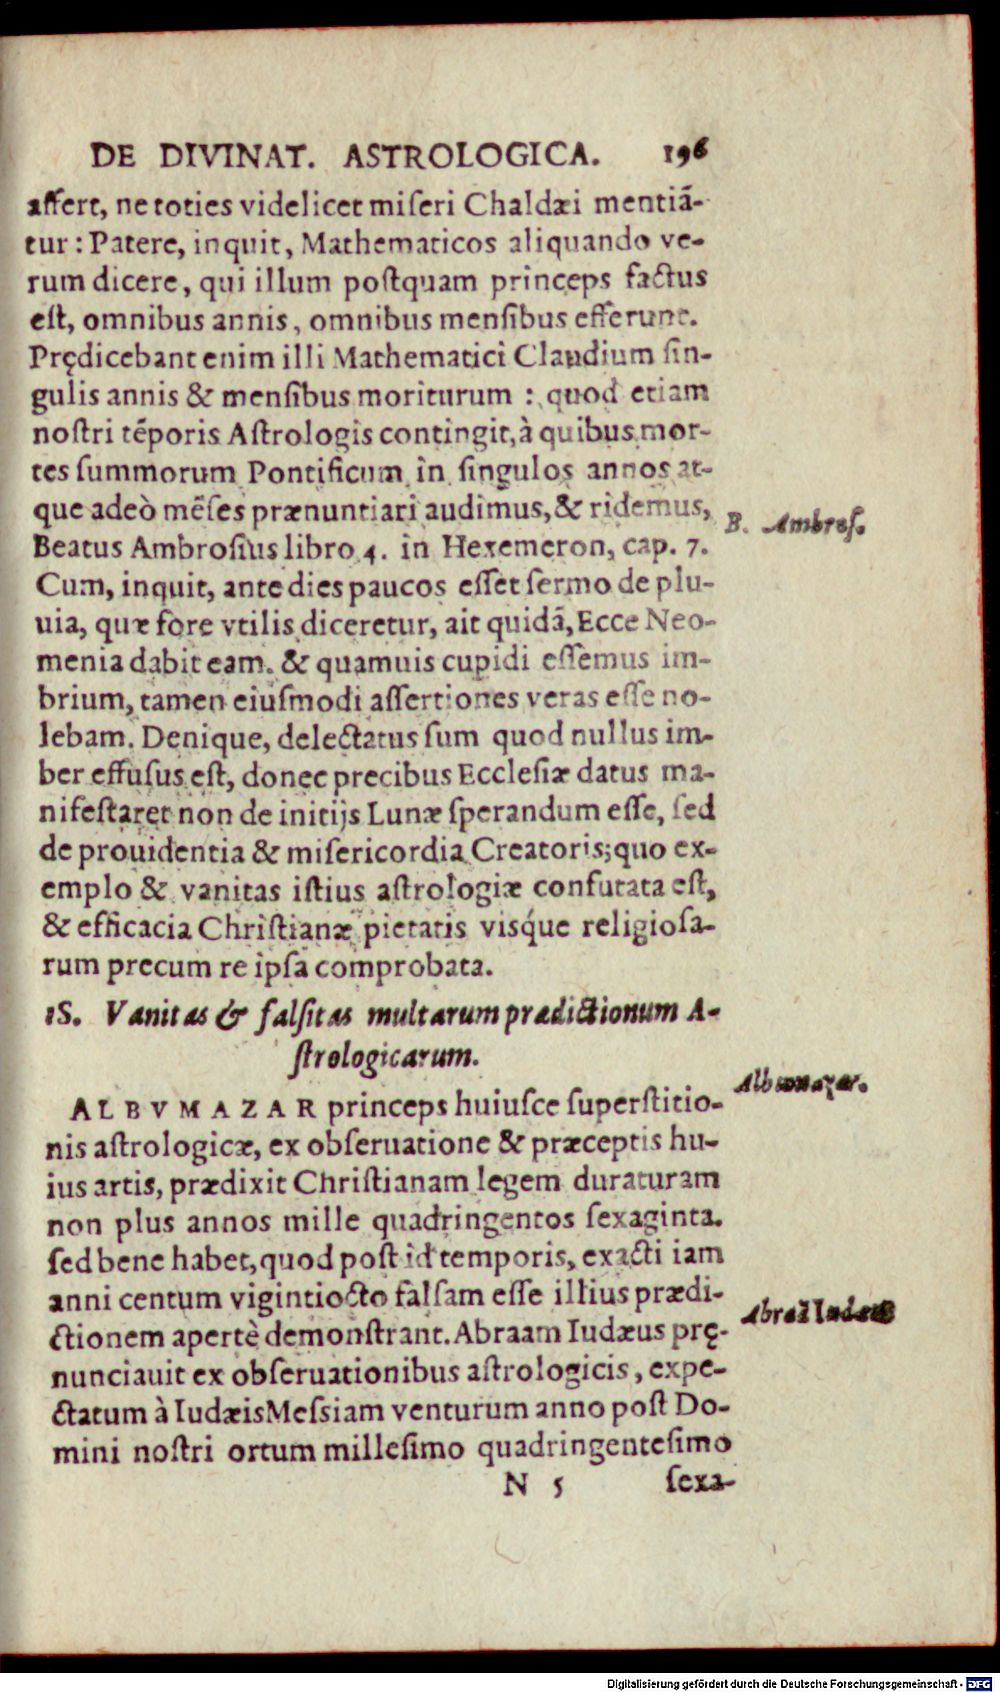 DE DIVINAT. ASTROLOGICA. 196
affert, ne toties videlicet miseri Chaldæi mentiã-
tur : Patere, inquit, Mathematicos aliquando ve-
rum dicere, qui illum postquam princeps factus
est, omnibus annis, omnibus mensibus efferunt.
Prędicebant enim illi Mathematici Claudium sin-
gulis annis & mensibus moriturum : quod etiam
nostri tẽporis Astrologis contingit, à quibus mor-
tes summorum Pontificum in singulos annos at-
que adeò mẽses prænuntiari audimus, & ridemus,
B. Ambros.
Beatus Ambrosius libro 4. in Hexemeron, cap. 7.
Cum, inquit, ante dies paucos esset sermo de plu-
uia, quæ fore vtilis diceretur, ait quidã, Ecce Neo-
menia dabit eam. & quamuis cupidi essemus im-
brium, tamen eiusmodi assertiones veras esse no-
lebam. Denique, delectatus sum quod nullus im-
ber effusus est, donec precibus Ecclesiæ datus ma-
nifestaret non de initijs Lunæ sperandum esse, sed
de prouidentia & misericordia Creatoris; quo ex-
emplo & vanitas istius astrologiæ confutata est,
& efficacia Christianæ pietatis visq́ue religiosa-
rum precum re ipsa comprobata.
1S. Vanitas & falsitas multarum prædictionum A-
strologicarum.
Albumazar.
ALBVMAZAR princeps huiusce superstitio-
nis astrologicæ, ex obseruatione & præceptis hu-
ius artis, prædixit Christianam legem duraturam
non plus annos mille quadringentos sexaginta.
sed bene habet, quod post id temporis, exacti iam
anni centum vigintiocto falsam esse illius prædi-
Abraã Iudæus
ctionem apertè demonstrant. Abraam Iudæus prę-
nunciauit ex obseruationibus astrologicis, expe-
ctatum à Iudæis Messiam venturum anno post Do-
mini nostri ortum millesimo quadringentesimo
N 5 sexa-
Digitalisierung gefördert durch die Deutsche Forschungsgemeinschaft - DFG